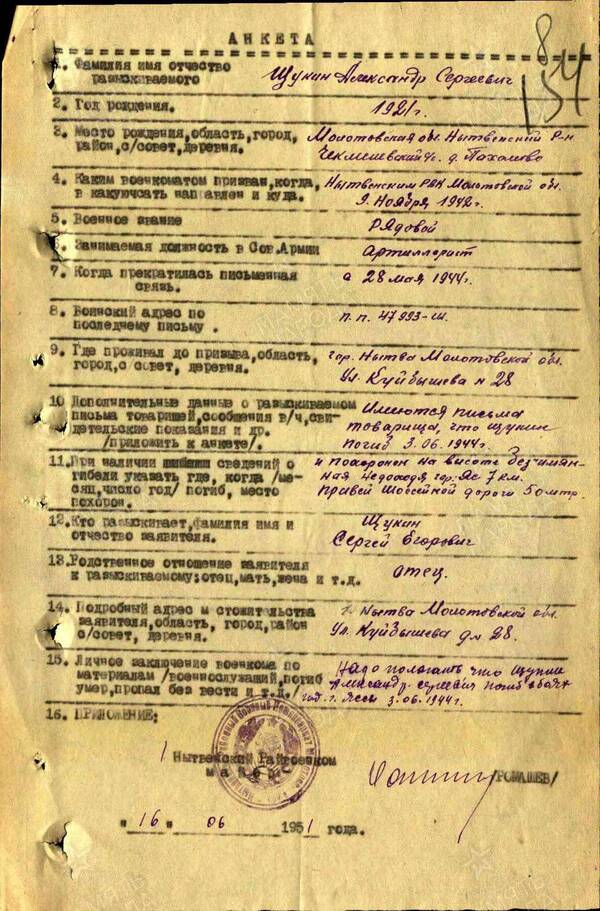 8
154
АНКЕТА
1. Фамилия имя отчество разыскиваемого Щукин Александр Сергеевич
2. Год рождения. 1921 г.
3. Место рождения, область, город, Молотовская обл. Нытвенский р-н
район, с/совет, деревня. д. Пахалево
4. Каким военкоматом призван, когда, Нытвенским РВК Молотовской обл.
в какую часть направлен и куда. 9 Ноября 1942 г.
5. Военное звание Рядовой
6. Занимаемая должность в Сов.Армии артиллерист
7. Когда прекратилась письменная с 28 мая 1944 г.
связь.
8. Воинский адрес по п.п. 47993-ш.
последнему письму.
9. Где проживал до призыва, область, гор. Нытва Молотовской обл.
город, с/совет, деревня. Ул. Куйбышева н 28
10 Дополнительные данные о разыскиваемом
письма товарищей, сообщения в/ч, сви- Имеются письма
детельские показания и др. товарища, что Щукин
/приложить к анкете/. погиб 3.06.1944 г.
11. При наличии сведений о и похоронен на высоте Безимян-
гибели указать где, когда /ме- ная недоходя гор. Яс 7 км.
сяц, число год/ погиб, место шоссейной дороги 50 мтр.
похорон.
12. Кто разыскивает, фамилия имя и Щукин
отчество заявителя. Сергей Егорович
13. Родственное отношение заявителя отец.
к разыскиваемому: отец, мать, жена и т.д.
14. Подробный адрес м стожительства г. Нытва Молотовской обл.
заявителя, область, город, район Ул. Куйбышева дм 28.
с/совет, деревня.
15. Личное заключение военкома по Надо полагать что Щукин
материалам /военнослужащий, погиб Александр Сергеевич погиб
умер, пропал без вести и т.д./ г. Яссы 3.06.1944 г.
16. ПРИЛОЖЕНИЕ:
Нытвенский Райвоенком
майор
/РОМАШЕВ/
" 16 " 06 1951 года.